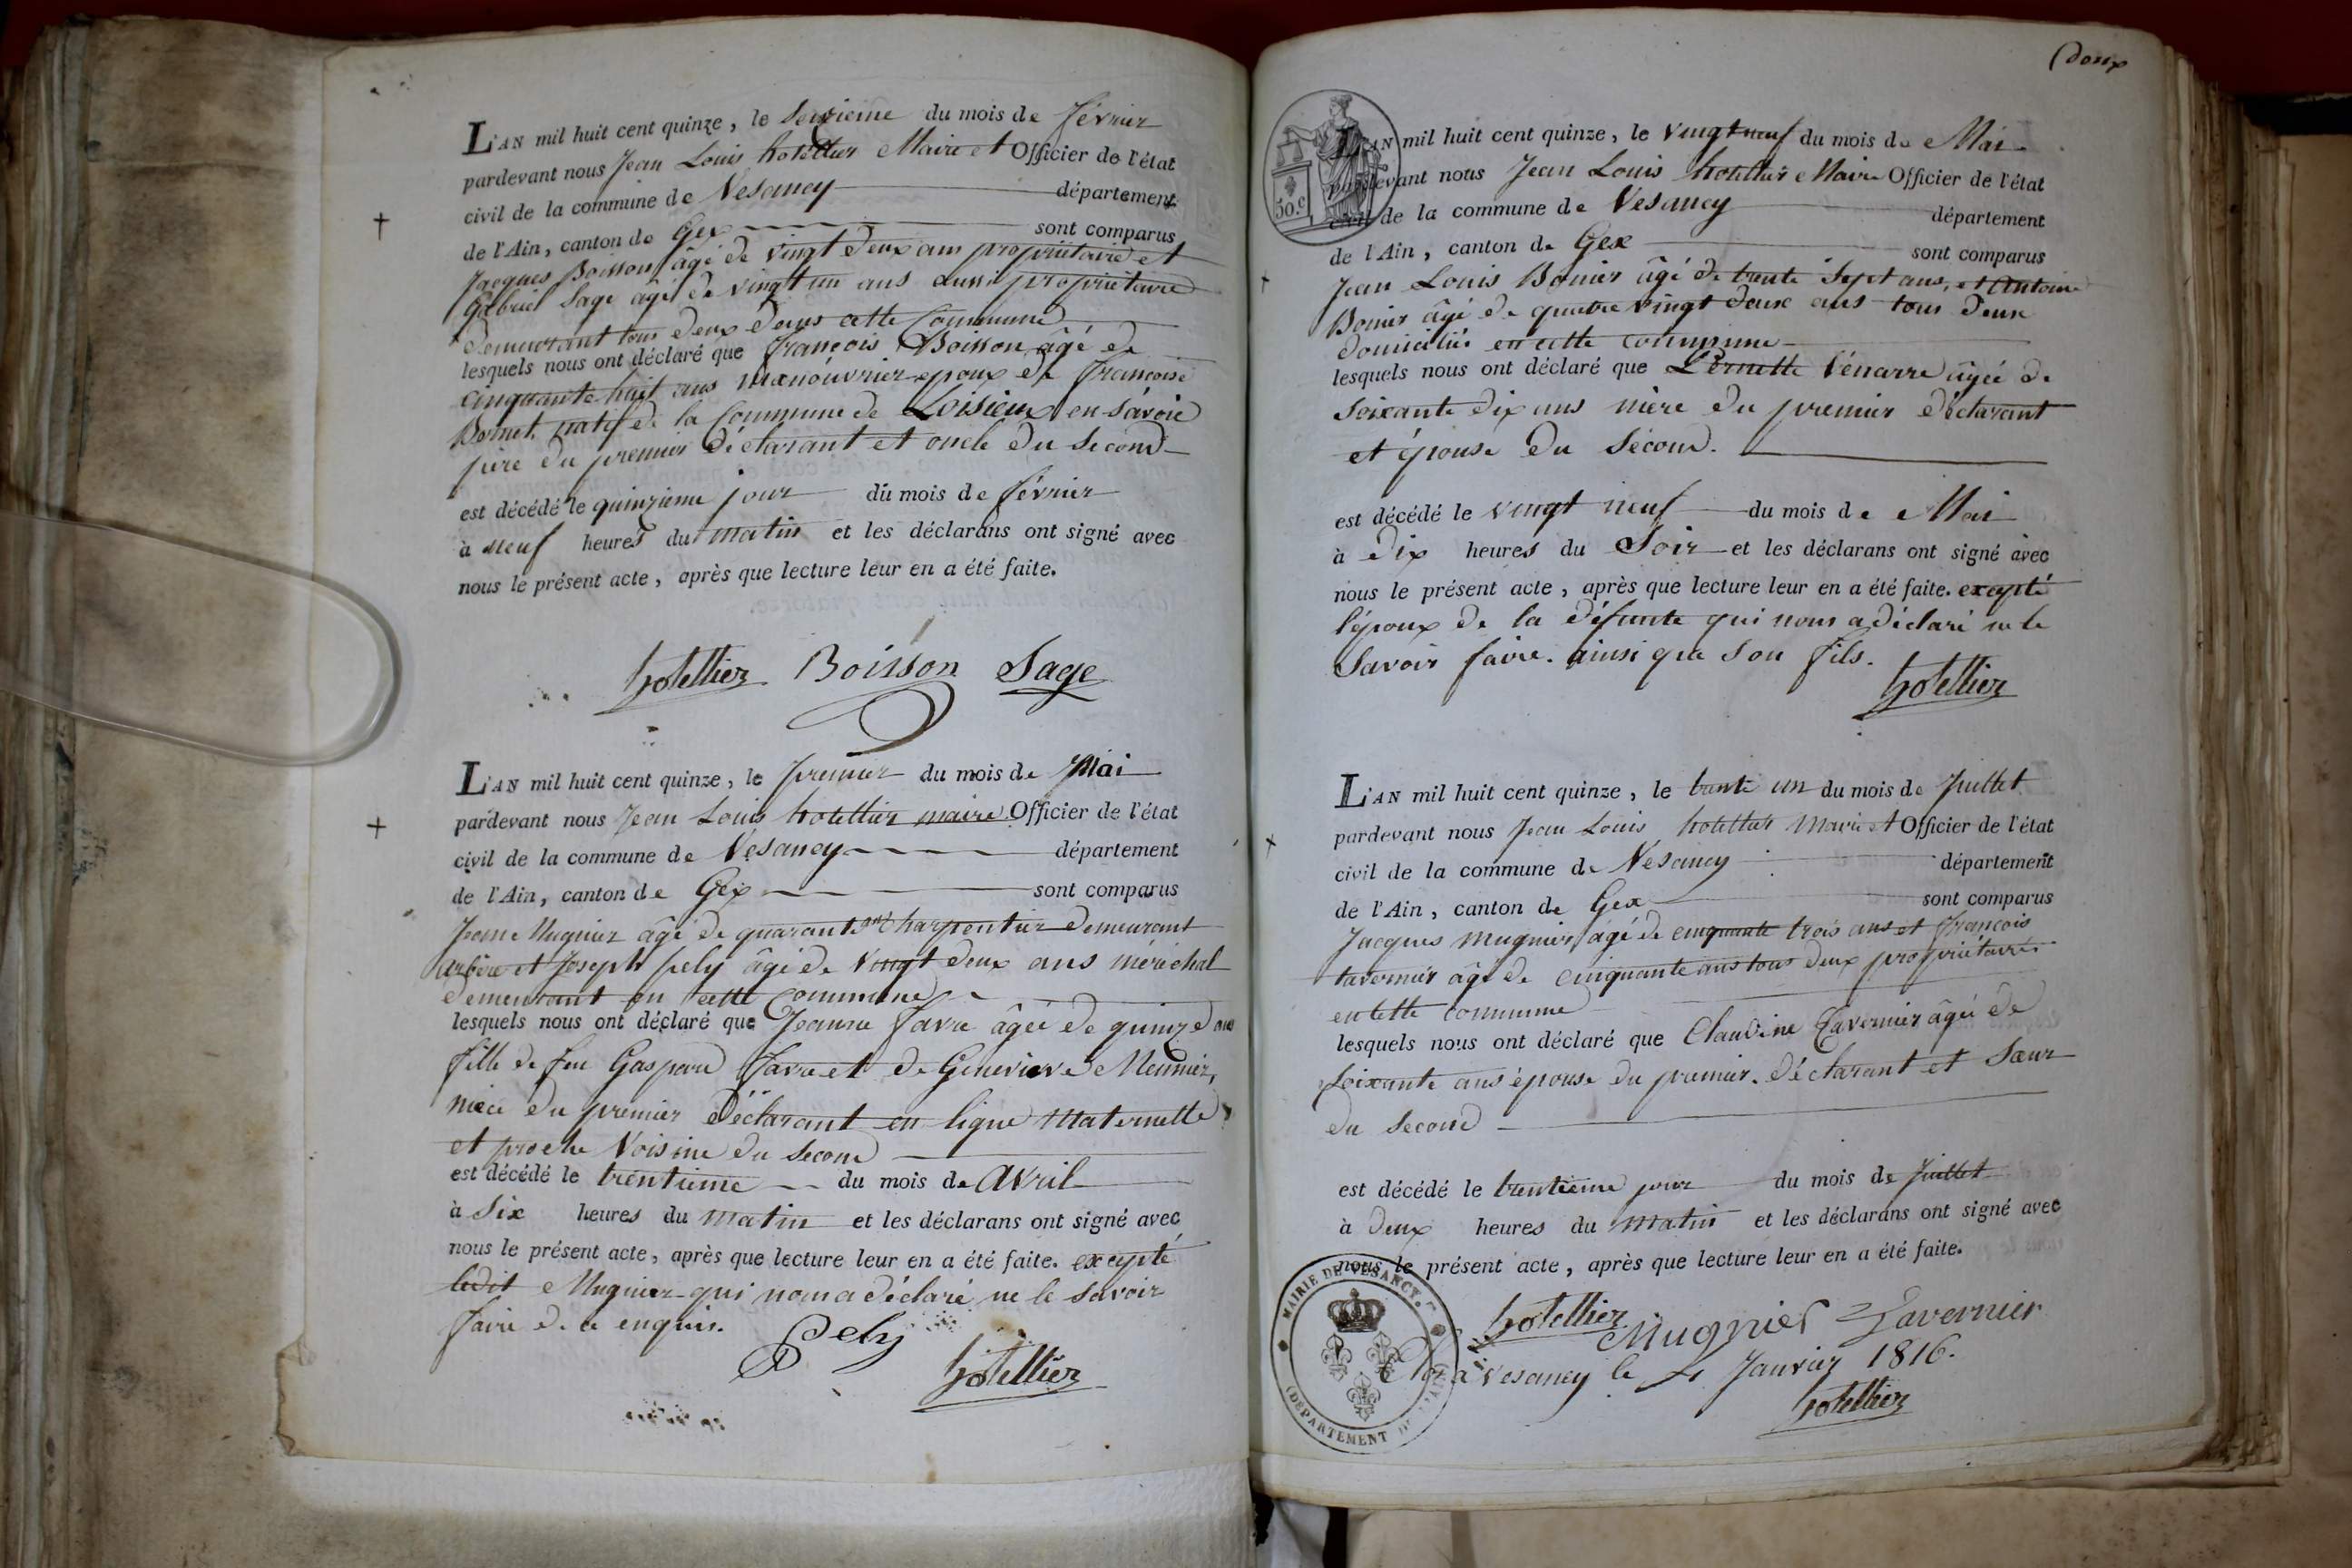 L'AN mil huit cent quinze, le Seizieme du mois de février
pardevant nous Jean Louis hotellier Maire et Officier de l'état
civil de la commune de Vesancy département
de l'Ain, canton de Gex sont comparus
Jacques Boisson âgé de vingt deux ans propriétaire et
Gabriel Sage âgé de vingt un ans aussi propriétaire
demeurant tous deux dans cette Commune
lesquels nous ont déclaré que françois Boisson âgé de
cinquante huit ans manouvrier epoux de françoise
natif de la Commune de Loisieux en Savoie
père du premier déclarant et oncle du second
est décédé le quinzieme jour du mois de février
à neuf heures du matin et les déclarans ont signé avec
nous le présent acte, après que lecture leur en a été faite.
hotellier Boisson Sage
L'AN mil huit cent quinze, le premier du mois de Mai
pardevant nous Jean Louis hotellier maire Officier de l'état
civil de la commune de Vesancy département
de l'Ain, canton de Gex sont comparus
Mugnier âgé de quarante charpentier demeurant
et Joseph pely âgé de vingt deux ans méréchal
demeurant en cette Commune
lesquels nous ont déclaré que Jeanne favre âgée de quinze ans
fille de feu Gaspard favre et de Genevieve Meunier,
niece du premier Déclarant en ligne Maternelle
et proche Voisine du second
est décédé le trentieme du mois de avril
à Six heures du matin et les déclarans ont signé avec
nous le présent acte, après que lecture leur en a été faite. excepté
ledit Mugnier qui nous a déclaré ne le savoir
faire de ce enquis.
Pely
hotellier
Doux
50.c
L'AN mil huit cent quinze, le vingt neuf du mois de Mai
pardevant nous Jean Louis hotellier Maire Officier de l'état
civil de la commune de Vesancy département
de l'Ain, canton de Gex sont comparus
Jean Louis Bonier âgé de trente Sept ans, et Antoine
Bonier âgé de quatre vingt deux ans tous deux
domiciliés en cette commune
lesquels nous ont déclaré que Pernette Vénarre âgée de
soixante dix ans mère du premier déclarant
et épouse du Second.
est décédé le vingt neuf du mois de Mai
à Dix heures du Soir et les déclarans ont signé avec
nous le présent acte, après que lecture leur en a été faite. excepté
l'époux de la défunte qui nous a déclaré ne le
Savoir faire. ainsi que Son fils.
hotellier
L'AN mil huit cent quinze, le trente un du mois de Juillet
pardevant nous Jean Louis hotellier Maire et Officier de l'état
civil de la commune de Vesancy département
de l'Ain, canton de Gex sont comparus
Jacques Mugnier âgé de cinquante trois ans et françois
tavernier âgé de cinquante ans tous deux propriétaires
en cette commune
lesquels nous ont déclaré que Claudine Tavernier âgée de
Soixante ans épouse du premier déclarant et Sœur
du Second
est décédé le trentieme jour du mois de Juillet
à deux heures du matin et les déclarans ont signé avec
nous le présent acte, après que lecture leur en a été faite.
hotellier Mugnier Tavernier
Clos à Vesancy le 1 Janvier 1816.
hotellier
MAIRIE DE VESANCY.
(DÉPARTEMENT DE L'AIN)